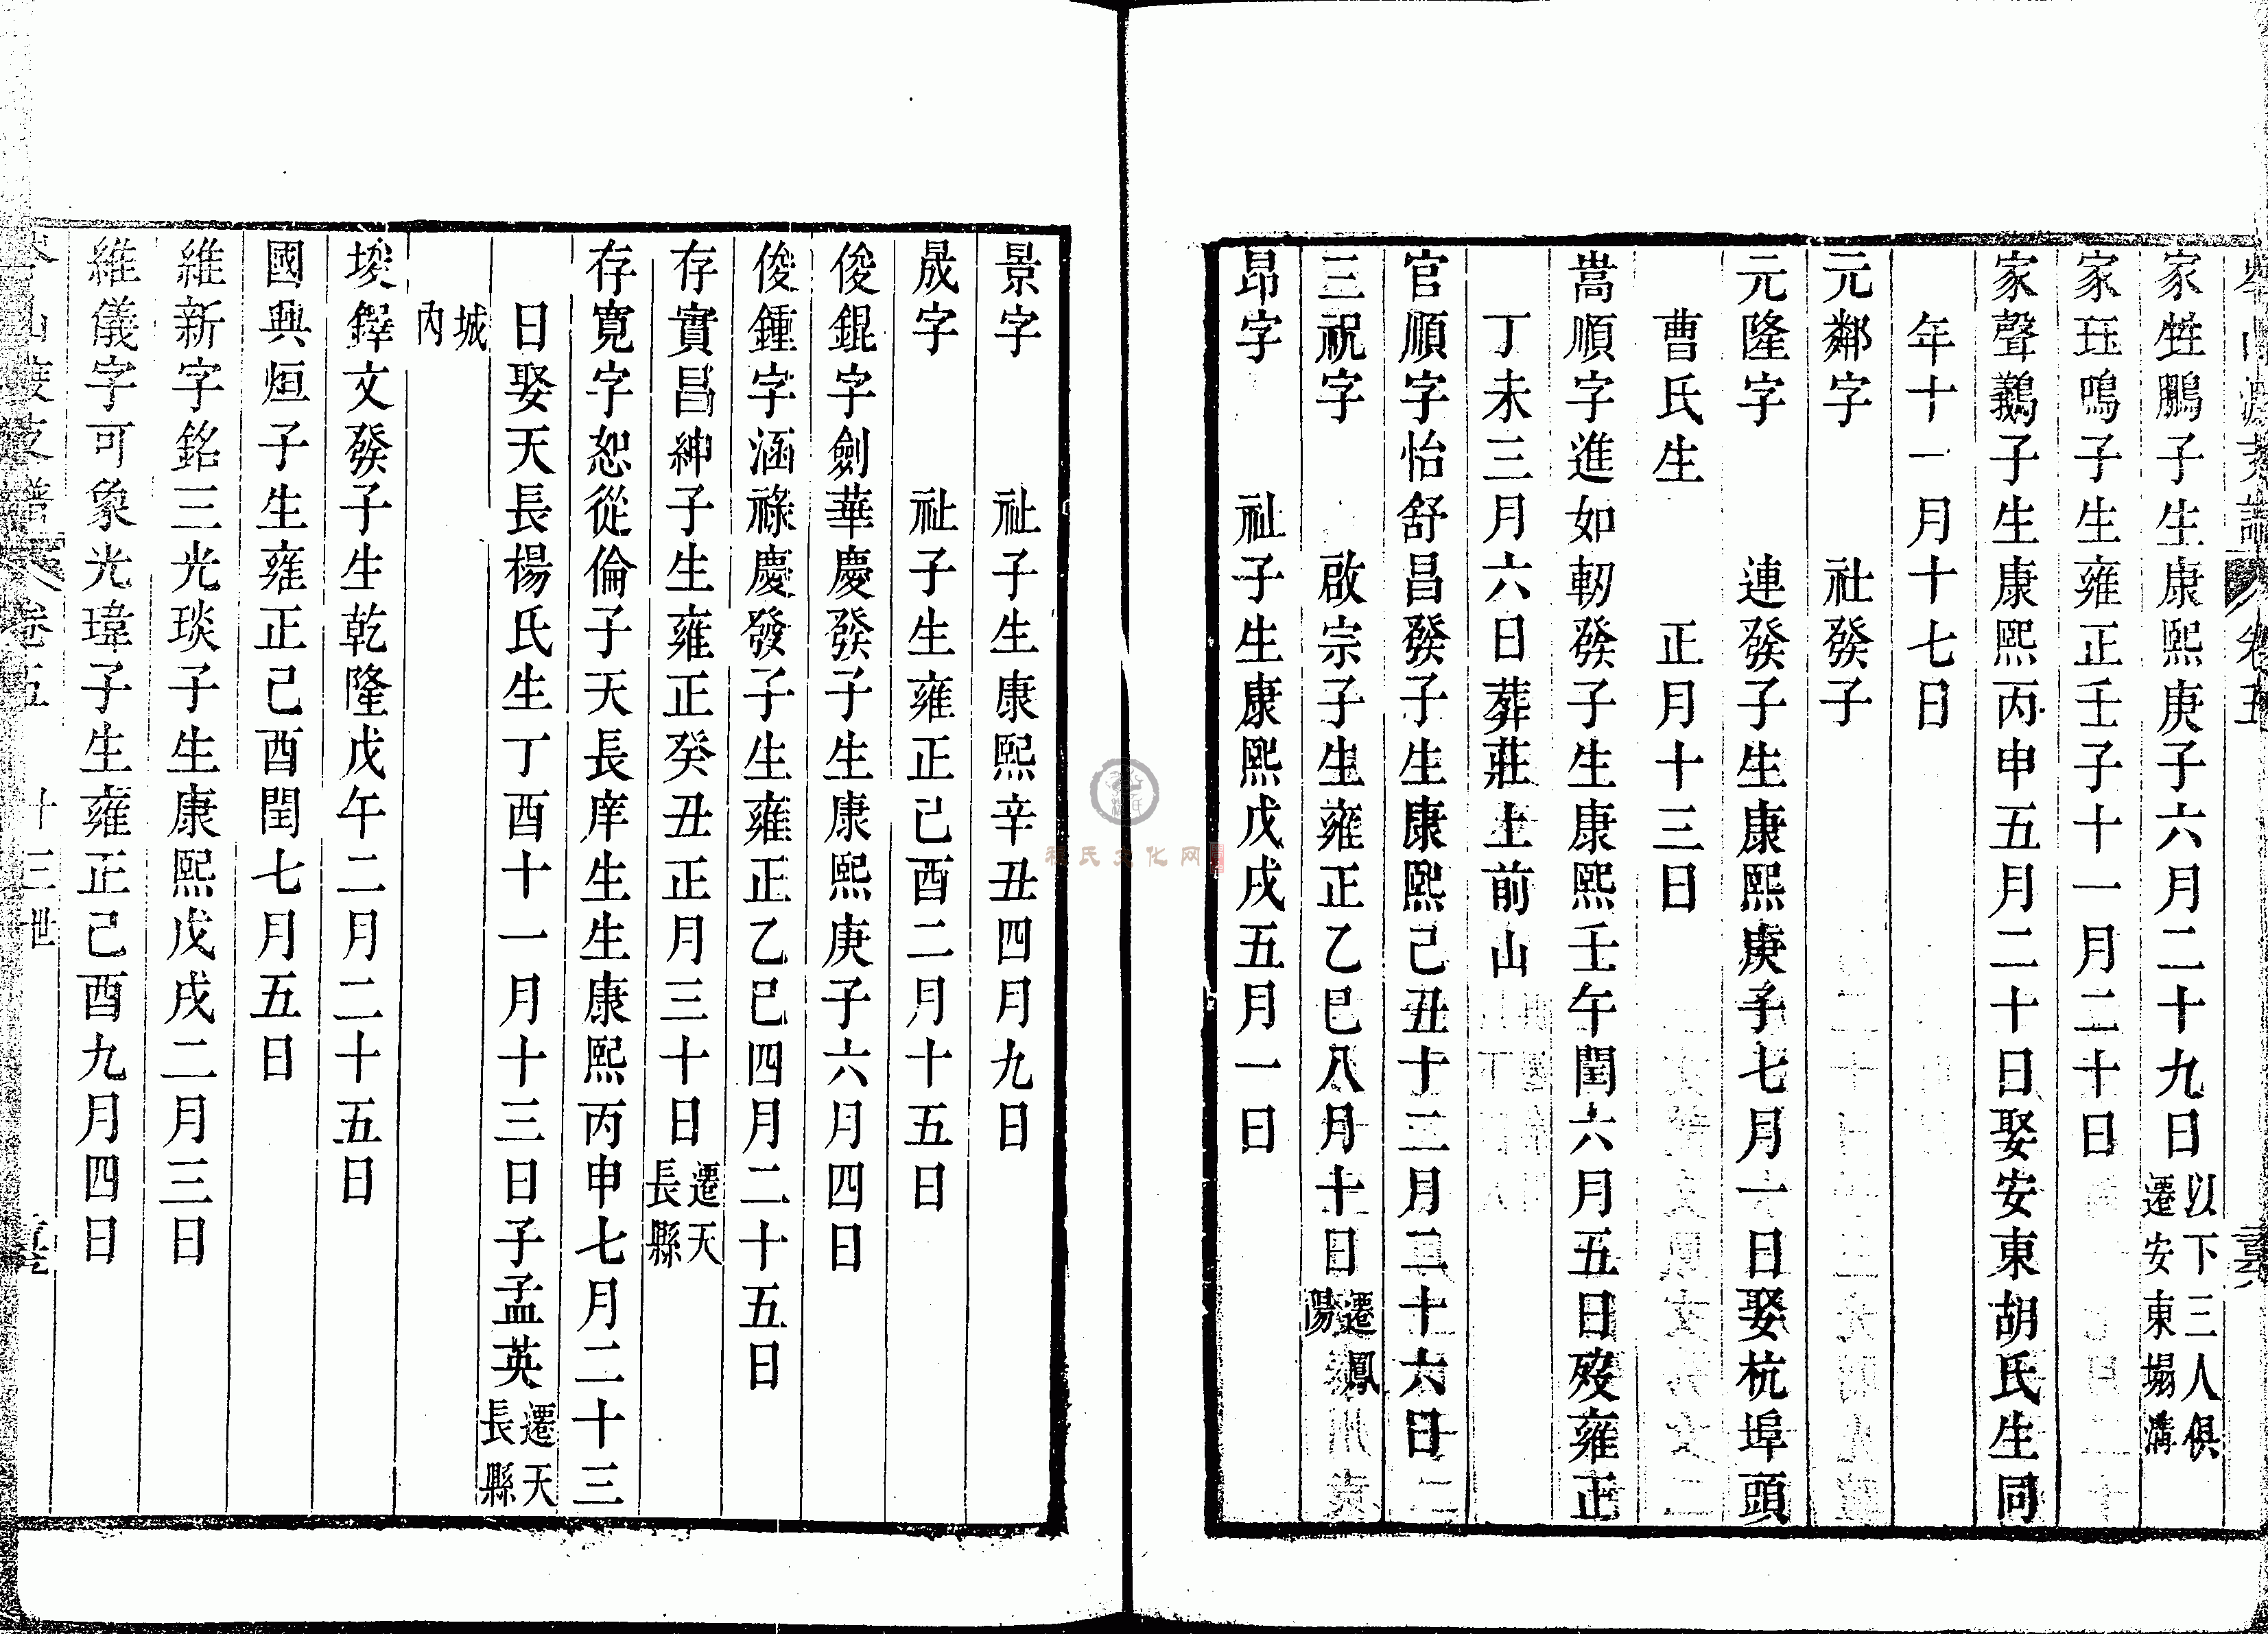 家甡鵬子生康熙庚子六月二十九日以下三人俱遷安東塌溝
家珏鳴子生雍正壬子十一月二十日
家聲鵜子生康熙丙申五月二十日娶安東胡氏生同
年十一月十七日
元鄰字 社發子
元隆字 連發子生康熙庚子七月一日娶杭埠頭
曹氏生 正月十三日
嵩順字進如軔發子生康熙壬午閏六月五日歿雍正
丁未三月六日葬莊上前山
官順字怡舒昌發子生康熙己丑十二月二十六日
三祝字 啟宗子生雍正乙巳八月十日遷鳳陽
昂字 祉子生康熙戊戌五月一日
景字 祉子生康熙辛丑四月九日
晟字 祉子生雍正己酉二月十五日
俊錕字劍華慶發子生康熙庚子六月四日
俊鍾字涵祿慶發子生雍正乙巳四月二十五日
存實昌紳子生雍正癸丑正月三十日遷天長縣
存寬字恕從倫子天長庠生生康熙丙申七月二十三
日娶天長楊氏生丁酉十一月十三日子孟英遷天長縣
城內
埈鐸文發子生乾隆戊午二月二十五日
國興烜子生雍正己酉閏七月五日
維新字銘三光琰子生康熙戊戌二月三日
維儀字可象光瑋子生雍正己酉九月四日
卷五 十三世
程氏文化网